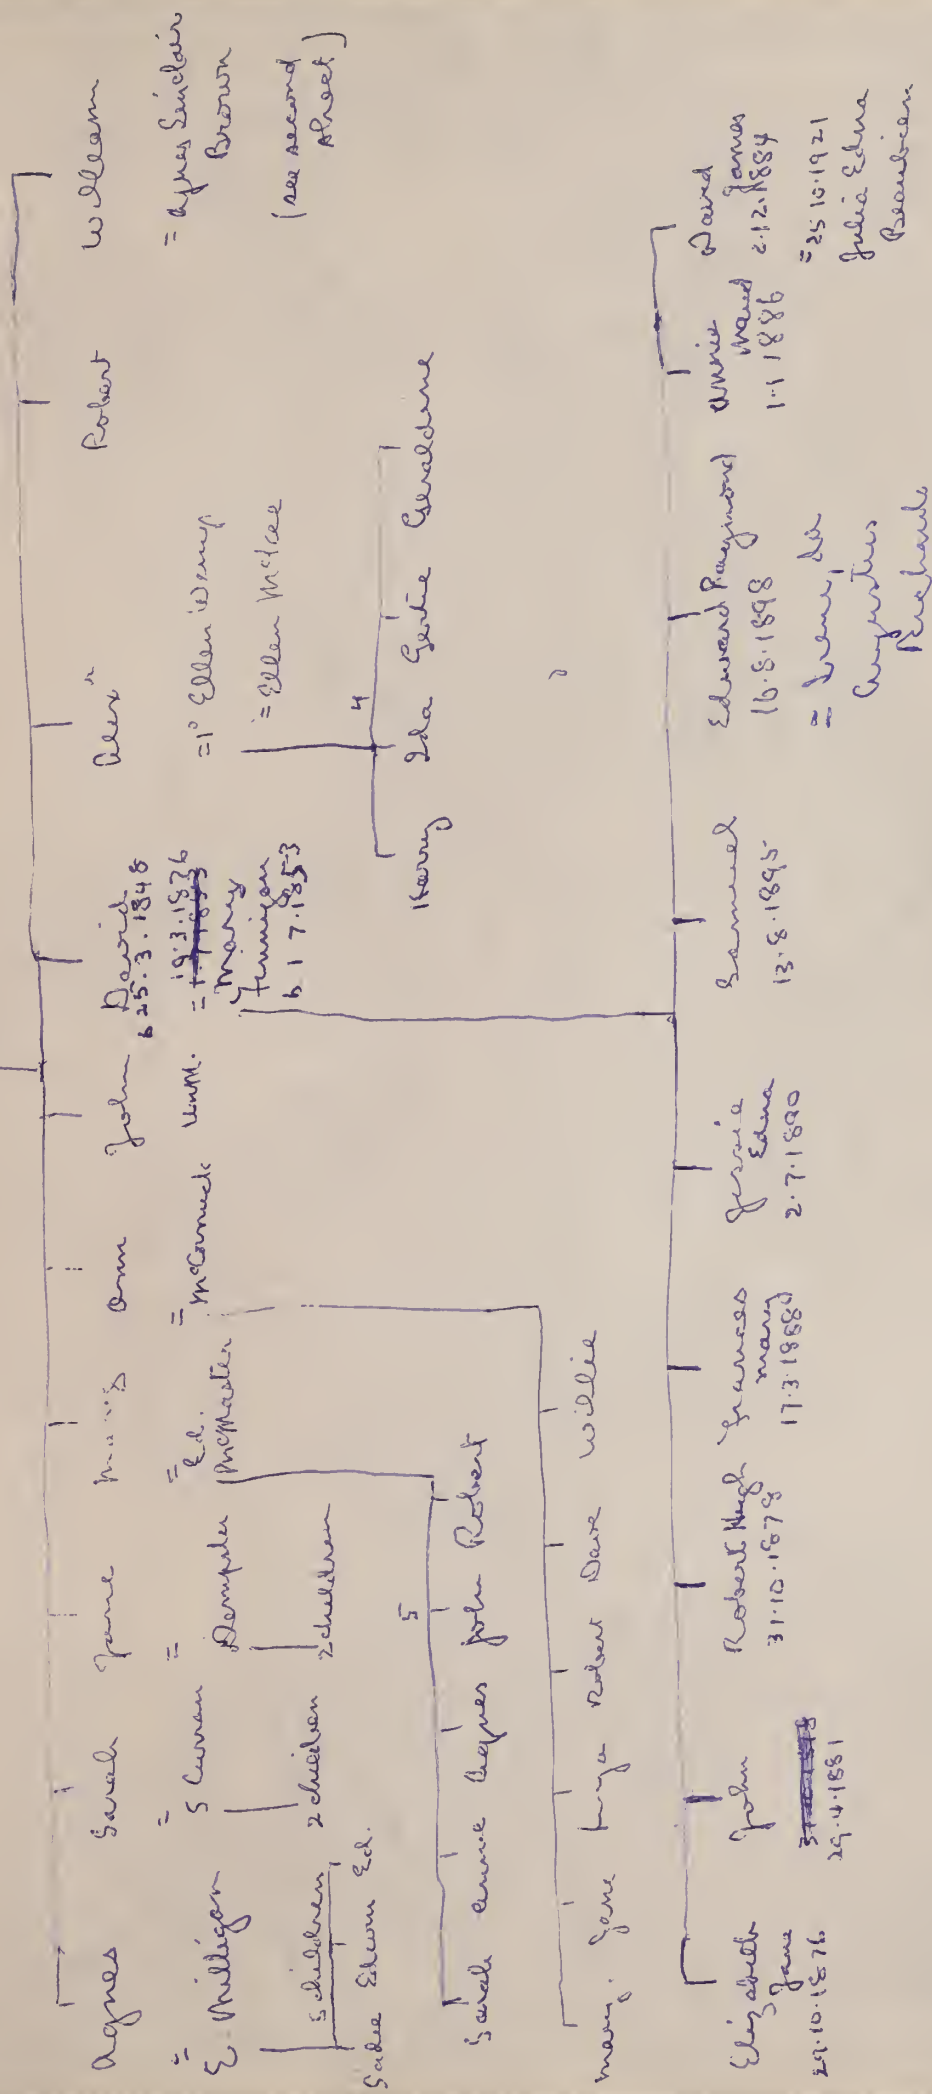 Agnes
=
E. Milligan
5 children
Sadie Edwin Ed.
Sarah
=
S Curran
2 children
Jane
=
Dempster
2 children
=
Ed.
McMaster
5
Sarah Annie Agnes John Robert
Ann
=
McCormick
Mary. Jane Robert Dave Willie
John
Unm.
David
b 25.3.1848
19.3.1876
=
Mary
b 17.7.1853
Alexr
=1° Ellen
= Ellen McKee
4
Harry Ida Gertie Geraldine
Robert
William
= Agnes Sinclair
Brown
(see second
sheet)
Elizabeth
Jane
29.10.1876
John
29.4.1881
Robert Hugh
31.10.1878
Frances
Mary
17.3.1888
Jessie
Edna
2.7.1890
Samuel
13.8.1895
Edward Raymond
16.8.1898
=
Augustus
Richards
Annie
Maud
1.1.1886
David
James
2.12.1884
= 25.10.1921
Julia Edna
Beaubien